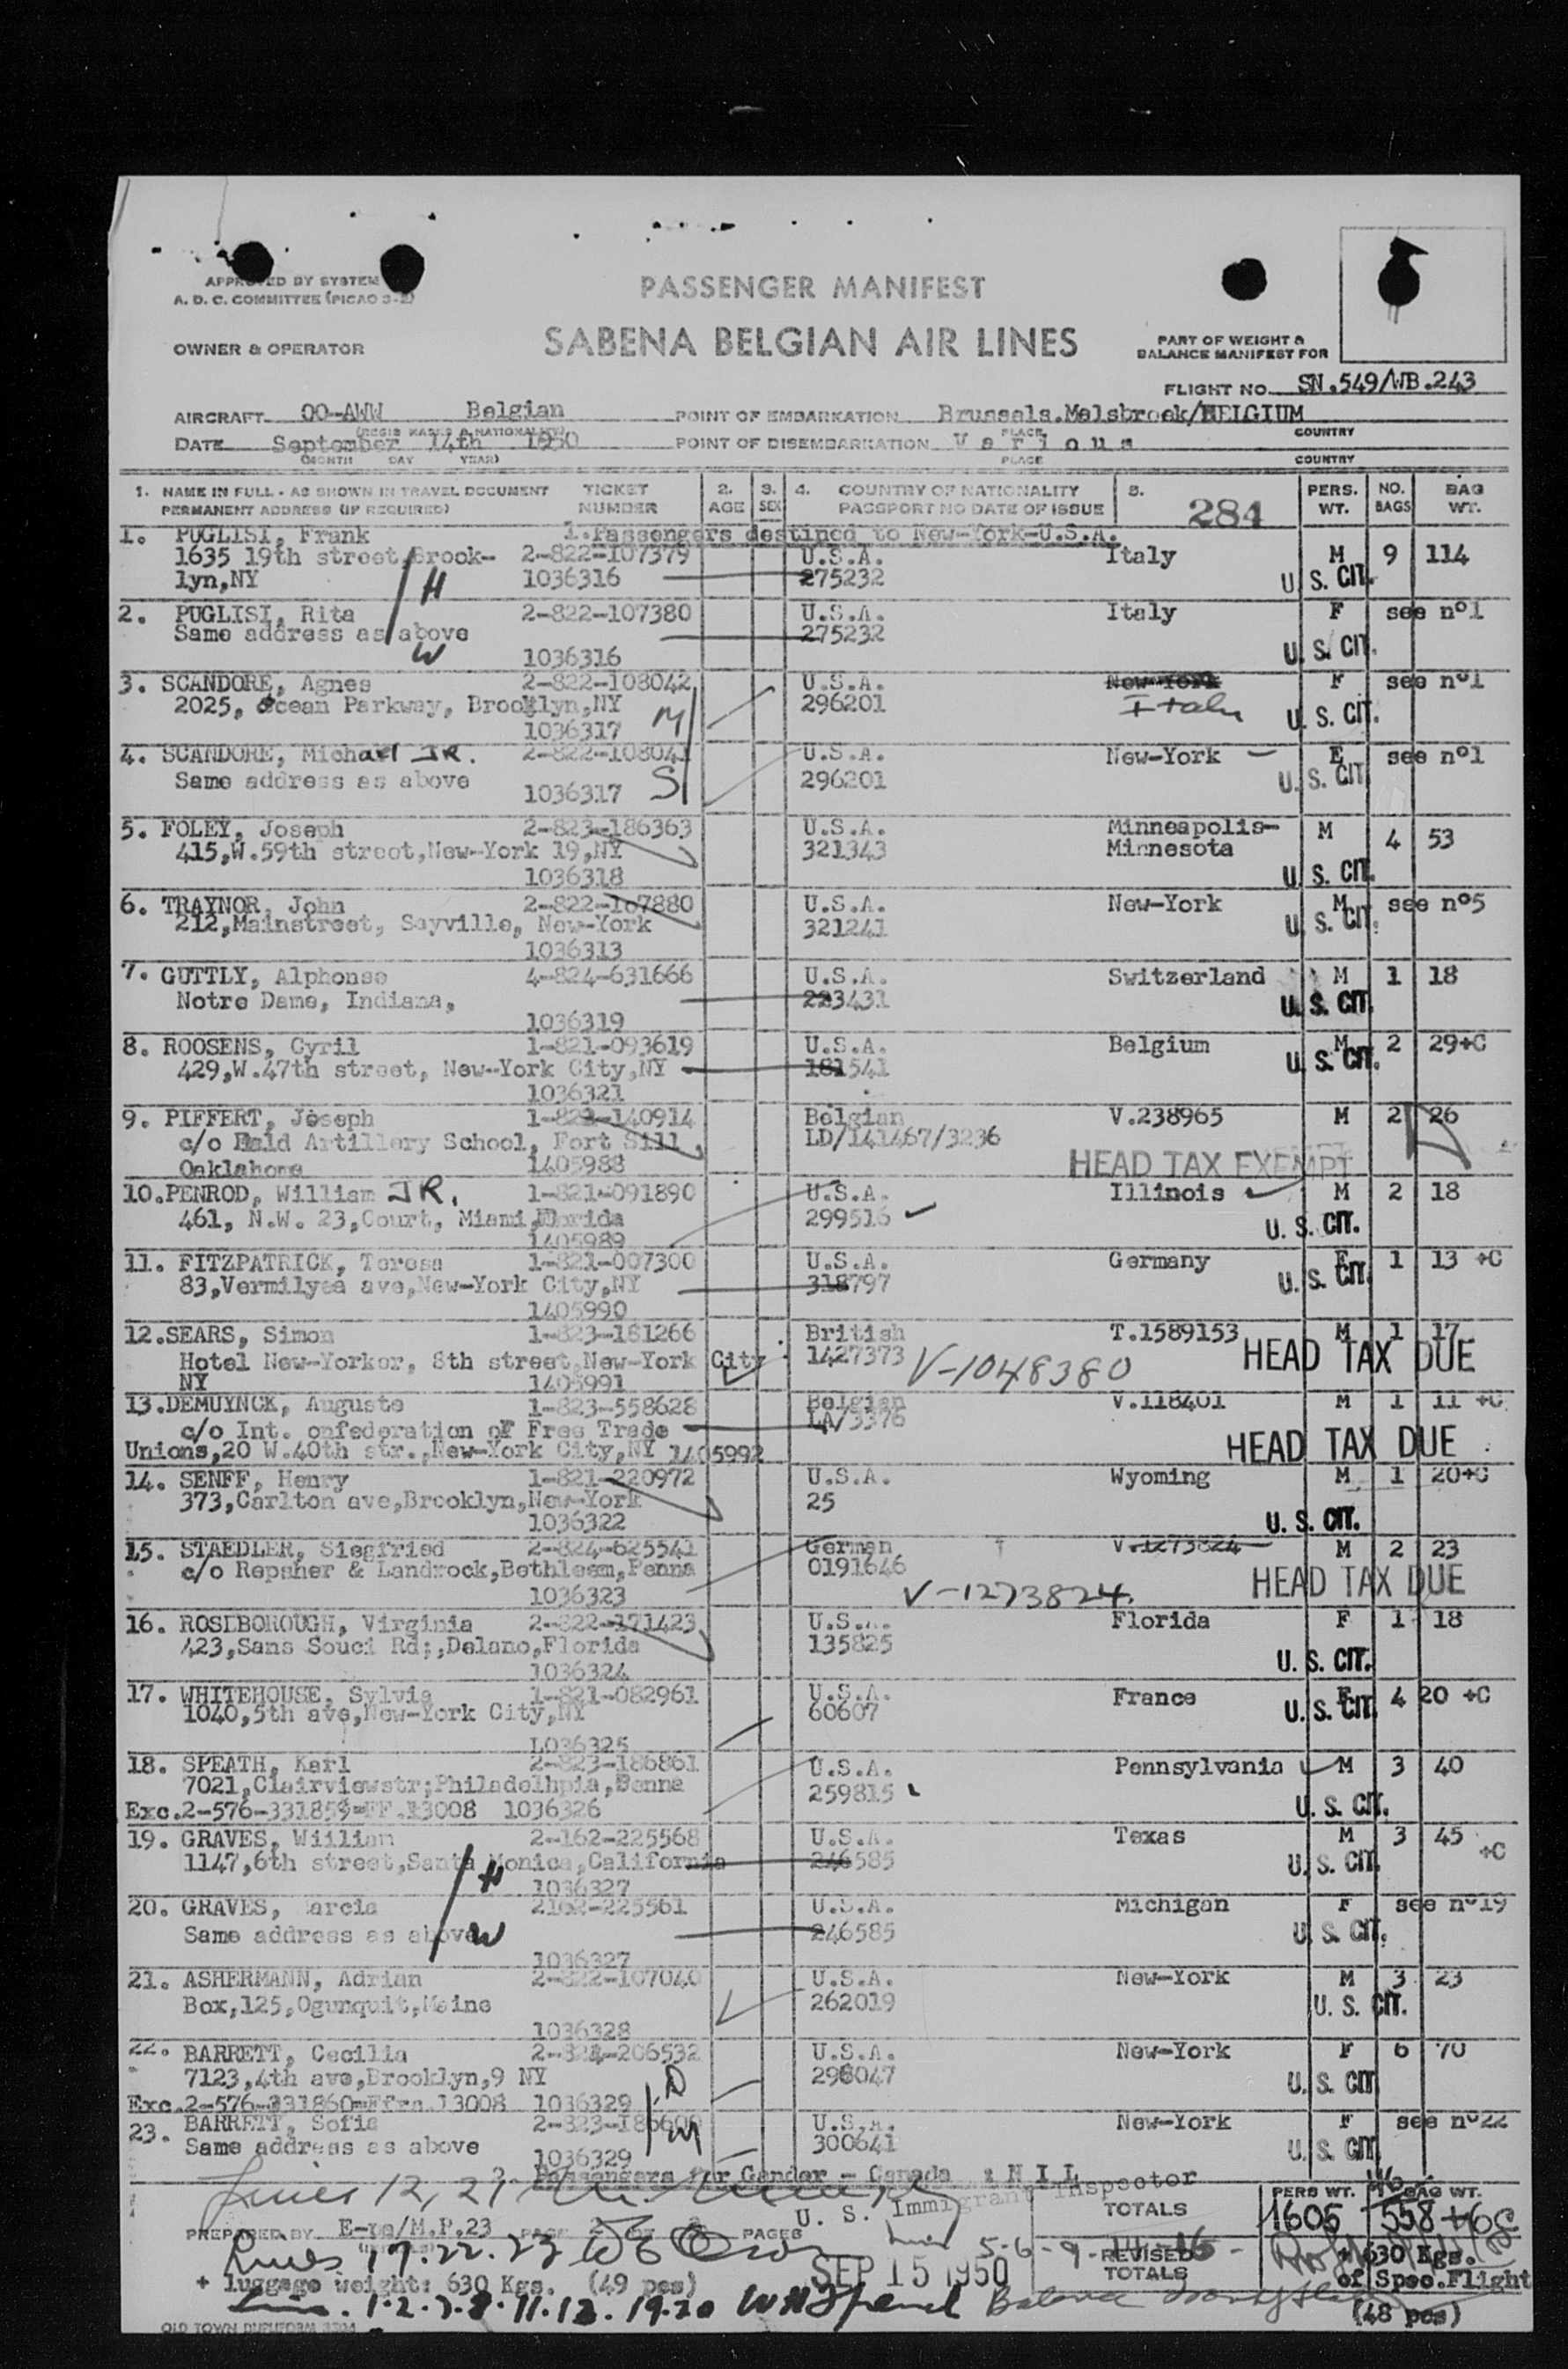 APPROVED BY SYSTEM
A. D. C. COMMITTEE (PICAO 3-2)
PASSENGER MANIFEST
OWNER & OPERATOR
SABENA BELGIAN AIR LINES
PART OF WEIGHT &
BALANCE MANIFEST FOR
FLIGHT NO. SN.549/WB.243
AIRCRAFT OO-AWW Belgian POINT OF EMBARKATION Brussels.Melsbroek/BELGIUM
(REGIS MARKS & NATIONALITY) PLACE COUNTRY
DATE September 14th 1950 POINT OF DISEMBARKATION V a r i o u s
(MONTH DAY YEAR) PLACE COUNTRY
1. NAME IN FULL - AS SHOWN IN TRAVEL DOCUMENT TICKET 2. 3. 4. COUNTRY OF NATIONALITY 5. PERS. NO. BAG
PERMANENT ADDRESS (IF REQUIRED) NUMBER AGE SEX PASSPORT NO DATE OF ISSUE 284 WT. BAGS WT.
1. PUGLISI, Frank 1.Passengers destined to New-York-U.S.A.
1635 19th street,Brook- 2-822-107379 U.S.A. Italy M 9 114
lyn,NY H 1036316 275232 U. S. CIT.
2. PUGLISI, Rita 2-822-107380 U.S.A. Italy F see nº1
Same address as above 275232
W 1036316 U. S. CIT.
3. SCANDORE, Agnes 2-822-108042 U.S.A. New-York F see nº1
2025, Ocean Parkway, Brooklyn,NY 296201 Italy
1036317 M U. S. CIT.
4. SCANDORE, Michael JR. 2-822-108041 U.S.A. New-York E see nº1
Same address as above 296201 U. S. CIT
1036317 S
5. FOLEY, Joseph 2-823-186363 U.S.A. Minneapolis- M 4 53
415,W.59th street,New-York 19,NY 321343 Minnesota
1036318 U. S. CIT.
6. TRAYNOR, John 2-822-107880 U.S.A. New-York M see nº5
212,Mainstreet, Sayville, New-York 321241 U. S. CIT.
1036313
7. GUTTLY, Alphonse 4-824-631666 U.S.A. Switzerland M 1 18
Notre Dame, Indiana, 223431 U. S. CIT.
1036319
8. ROOSENS, Cyril 1-821-093619 U.S.A. Belgium M 2 29+C
429,W.47th street, New-York City,NY 181541 U. S. CIT.
1036321
9. PIFFERT, Joseph 1-823-140914 Belgian V.238965 M 2 26
c/o Field Artillery School, Fort Sill LD/141467/3236
Oaklahoma 1405988 HEAD TAX EXEMPT
10.PENROD, William JR. 1-821-091890 U.S.A. Illinois M 2 18
461, N.W. 23,Court, Miami,Florida 299516
1405989 U. S. CIT.
11. FITZPATRICK, Teresa 1-821-007300 U.S.A. Germany F 1 13 +C
83,Vermilyea ave,New-York City,NY 318797 U. S. CIT.
1405990
12.SEARS, Simon 1-823-181266 British T.1589153 M 1 17
Hotel New-Yorker, 8th street,New-York City 1427373 V-1048380 HEAD TAX DUE
NY 1405991
13.DEMUYNCK, Auguste 1-823-558628 Belgian V.118401 M 1 11 +C
c/o Int. onfederation of Free Trade LA/3376
Unions,20 W.40th str.,New-York City,NY 1405992 HEAD TAX DUE
14. SENFF, Henry 1-821-220972 U.S.A. Wyoming M 1 20+C
373,Carlton ave,Brooklyn,New-York 25
1036322 U. S. CIT.
15. STAEDLER, Siegfried 2-824-625541 German V.1273824 M 2 23
c/o Repsher & Landrock,Bethleem,Penna 0191646 HEAD TAX DUE
1036323 V-1273824.
16. ROSEBOROUGH, Virginia 2-822-171423 U.S.A. Florida F 1 18
423,Sans Souci Rd;,Delano,Florida 135825
1036324 U. S. CIT.
17. WHITEHOUSE, Sylvia 1-821-082961 U.S.A. France F 4 20 +C
1040,5th ave,New-York City,NY 60607 U. S. CIT
1036325
18. SPEATH, Karl 2-823-186861 U.S.A. Pennsylvania M 3 40
7021,Clairviewstr;Philadelhpia,Penna 259815
Exc.2-576-331859=FF.13008 1036326 U. S. CIT.
19. GRAVES, William 2-162-225568 U.S.A. Texas M 3 45 +C
1147,6th street,Santa Monica,California 246585 U. S. CIT.
H 1036327
20. GRAVES, arcia 2162-225561 U.S.A. Michigan F see nº19
Same address as above W 246585 U. S. CIT.
1036327
21. ASHERMANN, Adrian 2-822-107040 U.S.A. New-York M 3 23
Box,125,Ogunquit,Maine 262019 U. S. CIT.
1036328
22. BARRETT, Cecilia 2-824-206532 U.S.A. New-York F 6 70
7123,4th ave,Brooklyn,9 NY 298047 U. S. CIT
Exc.2-576-331860=Ffrs.13008 1036329 D
23. BARRETT, Sofia 2-823-186600 U.S.A. New-York F see nº22
Same address as above M 300641 U. S. CIT
1036329
2. Passengers for Gander - Canada : N I L
Lines 12, 21 U. S. Immigrant Inspector TOTALS PERS WT. BAG WT.
1605 558
PREPARED BY E-re/M.P.23 PAGE 2 PAGES
Lines 17.22.23 Lines 5-6-9-14-16- REVISED TOTALS + 630 Kgs.
SEP 15 1950 of Spec.Flight
+ luggage weight: 630 Kgs. (49 pcs)
1.2.7.8.11.13.19.20 Balance (48 pcs)
OLD TOWN DUPLIFORM